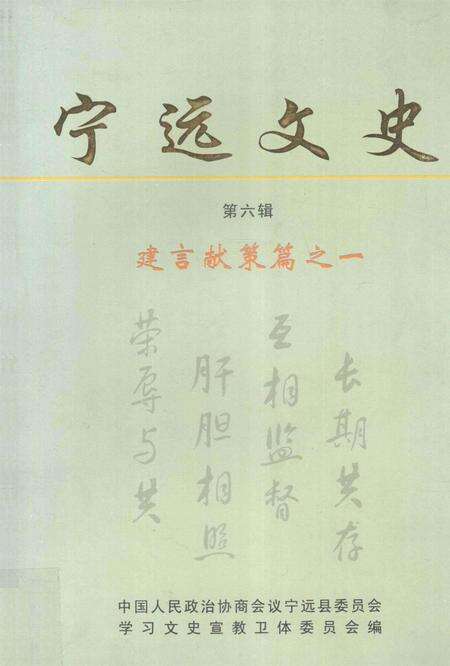 宁远文史
第六辑
建言献策篇之一
长期共存
互相监督
肝胆相照
荣辱与共
中国人民政治协商会议宁远县委员会
学习文史宣教卫体委员会编